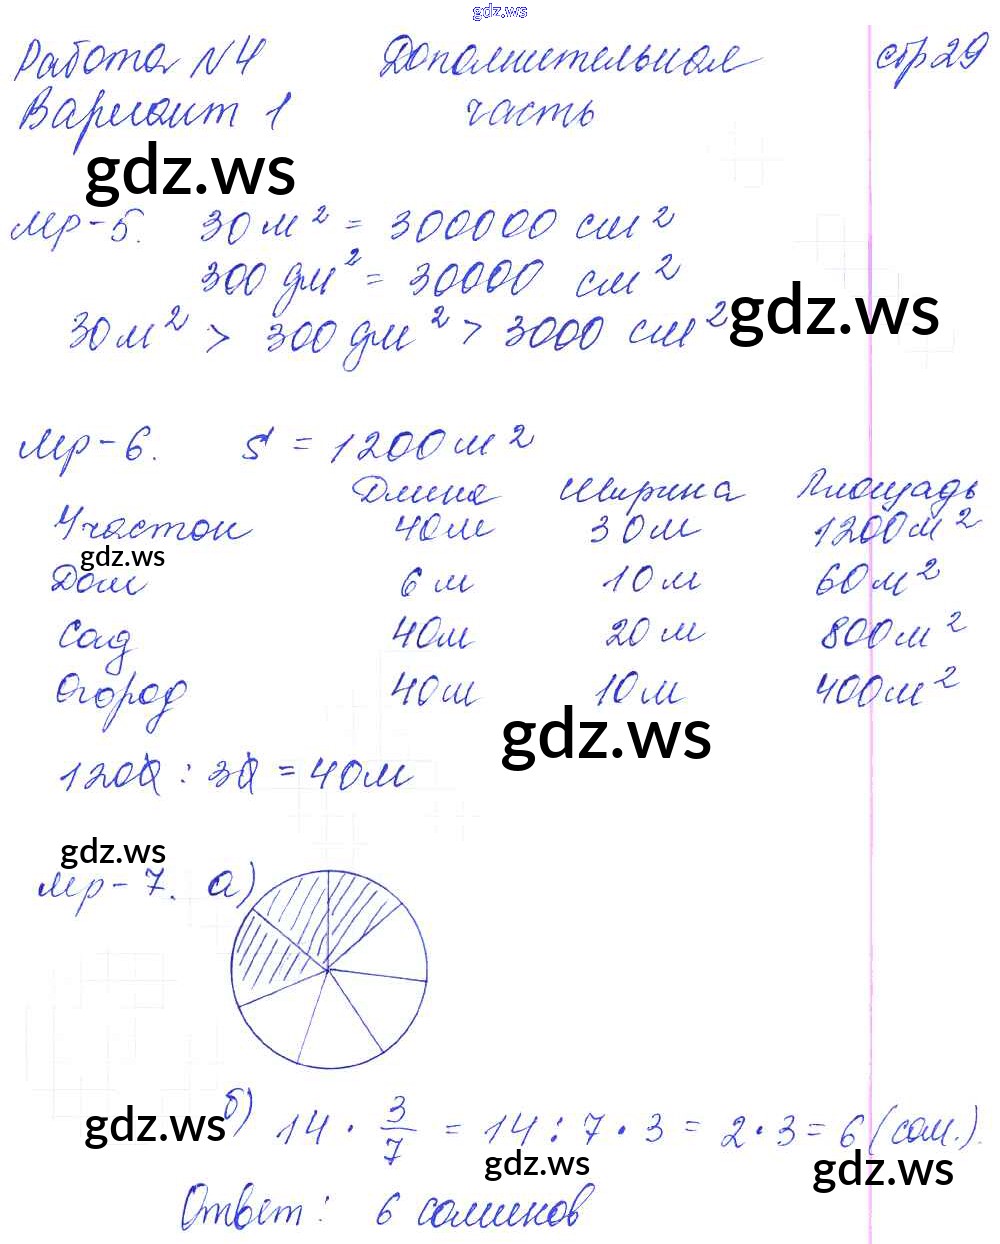 gdz.ws
Работа N4 Дополнительная стр 29
Вариант 1 часть
gdz.ws
Мр-5. 30 м² = 300000 см²
300 дм² = 30000 см²
gdz.ws
30 м² > 300 дм² > 3000 см²
Мр-6. S = 1200 м²
Длина Ширина Площадь
Участок 40 м 30 м 1200 м²
gdz.ws
Дом 6 м 10 м 60 м²
Сад 40 м 20 м 800 м²
Огород 40 м 10 м 400 м²
gdz.ws
1200 : 30 = 40 м
gdz.ws
Мр-7. а)
gdz.ws
б) 14 · 3/7 = 14 : 7 · 3 = 2 · 3 = 6 (сом.).
gdz.ws gdz.ws
Ответ: 6 сомиков